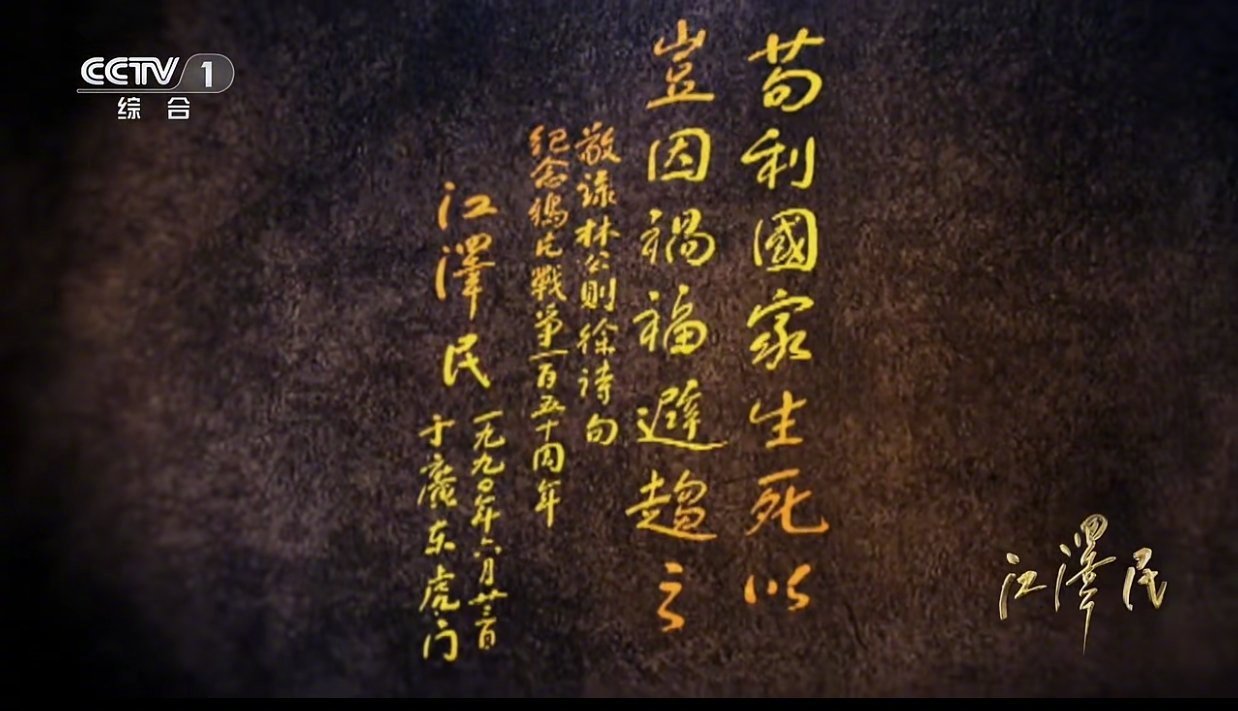 CCTV 1
综合
苟利國家生死以
豈因禍福避趨之
敬录林公則徐诗句
纪念鴉片戰爭一百五十周年
江澤民
一九九〇年六月廿三日
于廣东虎门
江澤民